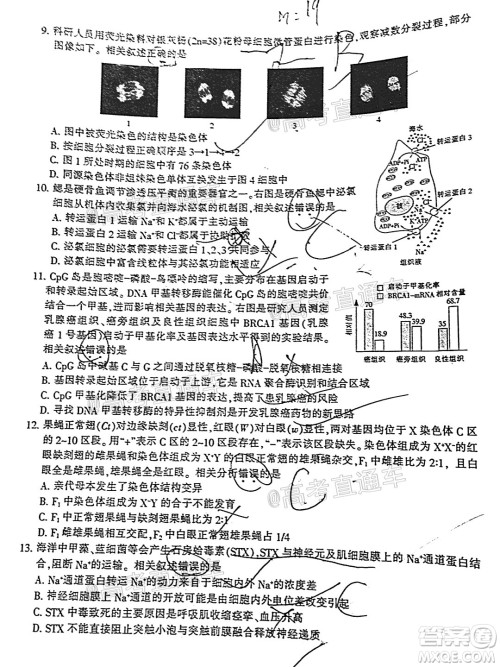 M=19
9. 科研人员用荧光染料对银灰杨(2n=38)花粉母细胞微管蛋白进行染色，观察减数分裂过程，部分
图像如下。相关叙述正确的是
1 2 3 4
A. 图中被荧光染色的结构是染色体
B. 按细胞分裂过程顺序为 3→1→2→4
C. 图 1 所处时期的细胞中 K 76 条染色体
D. 同源染色体未分离直接产生于图 4 细胞中
海水
转运蛋白 3
ADP+Pi
ATP
转运蛋白 2
转运蛋白 1
ADP+Pi
ATP
K⁺
Na⁺
组织液
10. 鳃是硬骨鱼调节渗透压平衡的重要器官。右图是硬骨鱼鳃中泌氯
细胞从机体内收集氯并向海水泌氯的机制图。相关叙述错误的是
A. 转运蛋白 1 运输 Na⁺和 K⁺都属于主动运输
B. 转运蛋白 2 运输 Na⁺和 Cl⁻都属于协助扩散
C. 泌氯细胞的泌氯过程需要转运蛋白 1,2,3 共同参与
D. 泌氯细胞与组织液和外界海水均有物质交换
11. CpG 岛是胞嘧啶-磷酸-鸟嘌呤的缩写，该结构主要分布在基因启动子
和转录起始区域。DNA 甲基转移酶能催化 CpG 岛的胞嘧啶共价结合
甲基，进而影响基因转录。右图是研究人员测定
乳腺癌组织、癌旁组织及良性组织细胞中 BRCA1 基因(乳腺
癌 1 号基因)启动子和基因表达水平得到的实验结果。
相关叙述错误的是
启动子甲基化率
BRCA1-mRNA 相对含量
相对值
70
18.9
48.3
39.9
35
68.7
癌组织 癌旁组织 良性组织
A. CpG 岛中碱基 C 与 G 之间通过脱氧核糖-磷酸-脱氧核糖相连
B. 基因转录起始区域位于启动子上游，它是 RNA 聚合酶识别和结合的位点
C. 基因启动子区域的甲基化可能抑制了基因的表达
D. DNA 甲基转移酶的特异性抑制剂是开发乳腺癌药物的新思路
12. 果蝇正常翅(Ct)对边缘缺刻(ct)显性，红眼(W)对白眼(w)显性，两对基因均位于 X 染色体 C 区
的 2~10 区段。用“+”表示有 C 区的 2~10 区段存在，“-”表示该区段缺失。染色体组成为 X⁺X⁻的红
眼缺刻雌蝇与红眼正常翅雄蝇杂交，F₁ 中出现了白眼正常翅雌果蝇，且雌雄个体数目比为 2:1。
相关叙述错误的是
A. 亲代母本发生了染色体结构变异
B. F₁ 中 X⁻X⁺、X⁻Y 的个体不能发育
C. F₁ 中正常翅果蝇与缺刻翅果蝇的比例为 2:1
D. F₁ 中白眼正常翅雌果蝇占 1/4
13. 海洋中甲藻、蓝细菌等会产生石房蛤毒素(STX)，STX 与神经元及肌细胞膜上的 Na⁺通道蛋白结
合，阻断 Na⁺内流。相关叙述错误的是
A. Na⁺通道蛋白转运 Na⁺的动力来自于膜两侧 Na⁺的浓度差
B. 神经细胞膜上 Na⁺通道的开放可能与膜电位差改变引起
C. STX 中毒致死的主要原因是呼吸肌收缩痉挛，窒息死亡
D. STX 不能直接阻止乙酰胆碱等小分子神经递质的释放